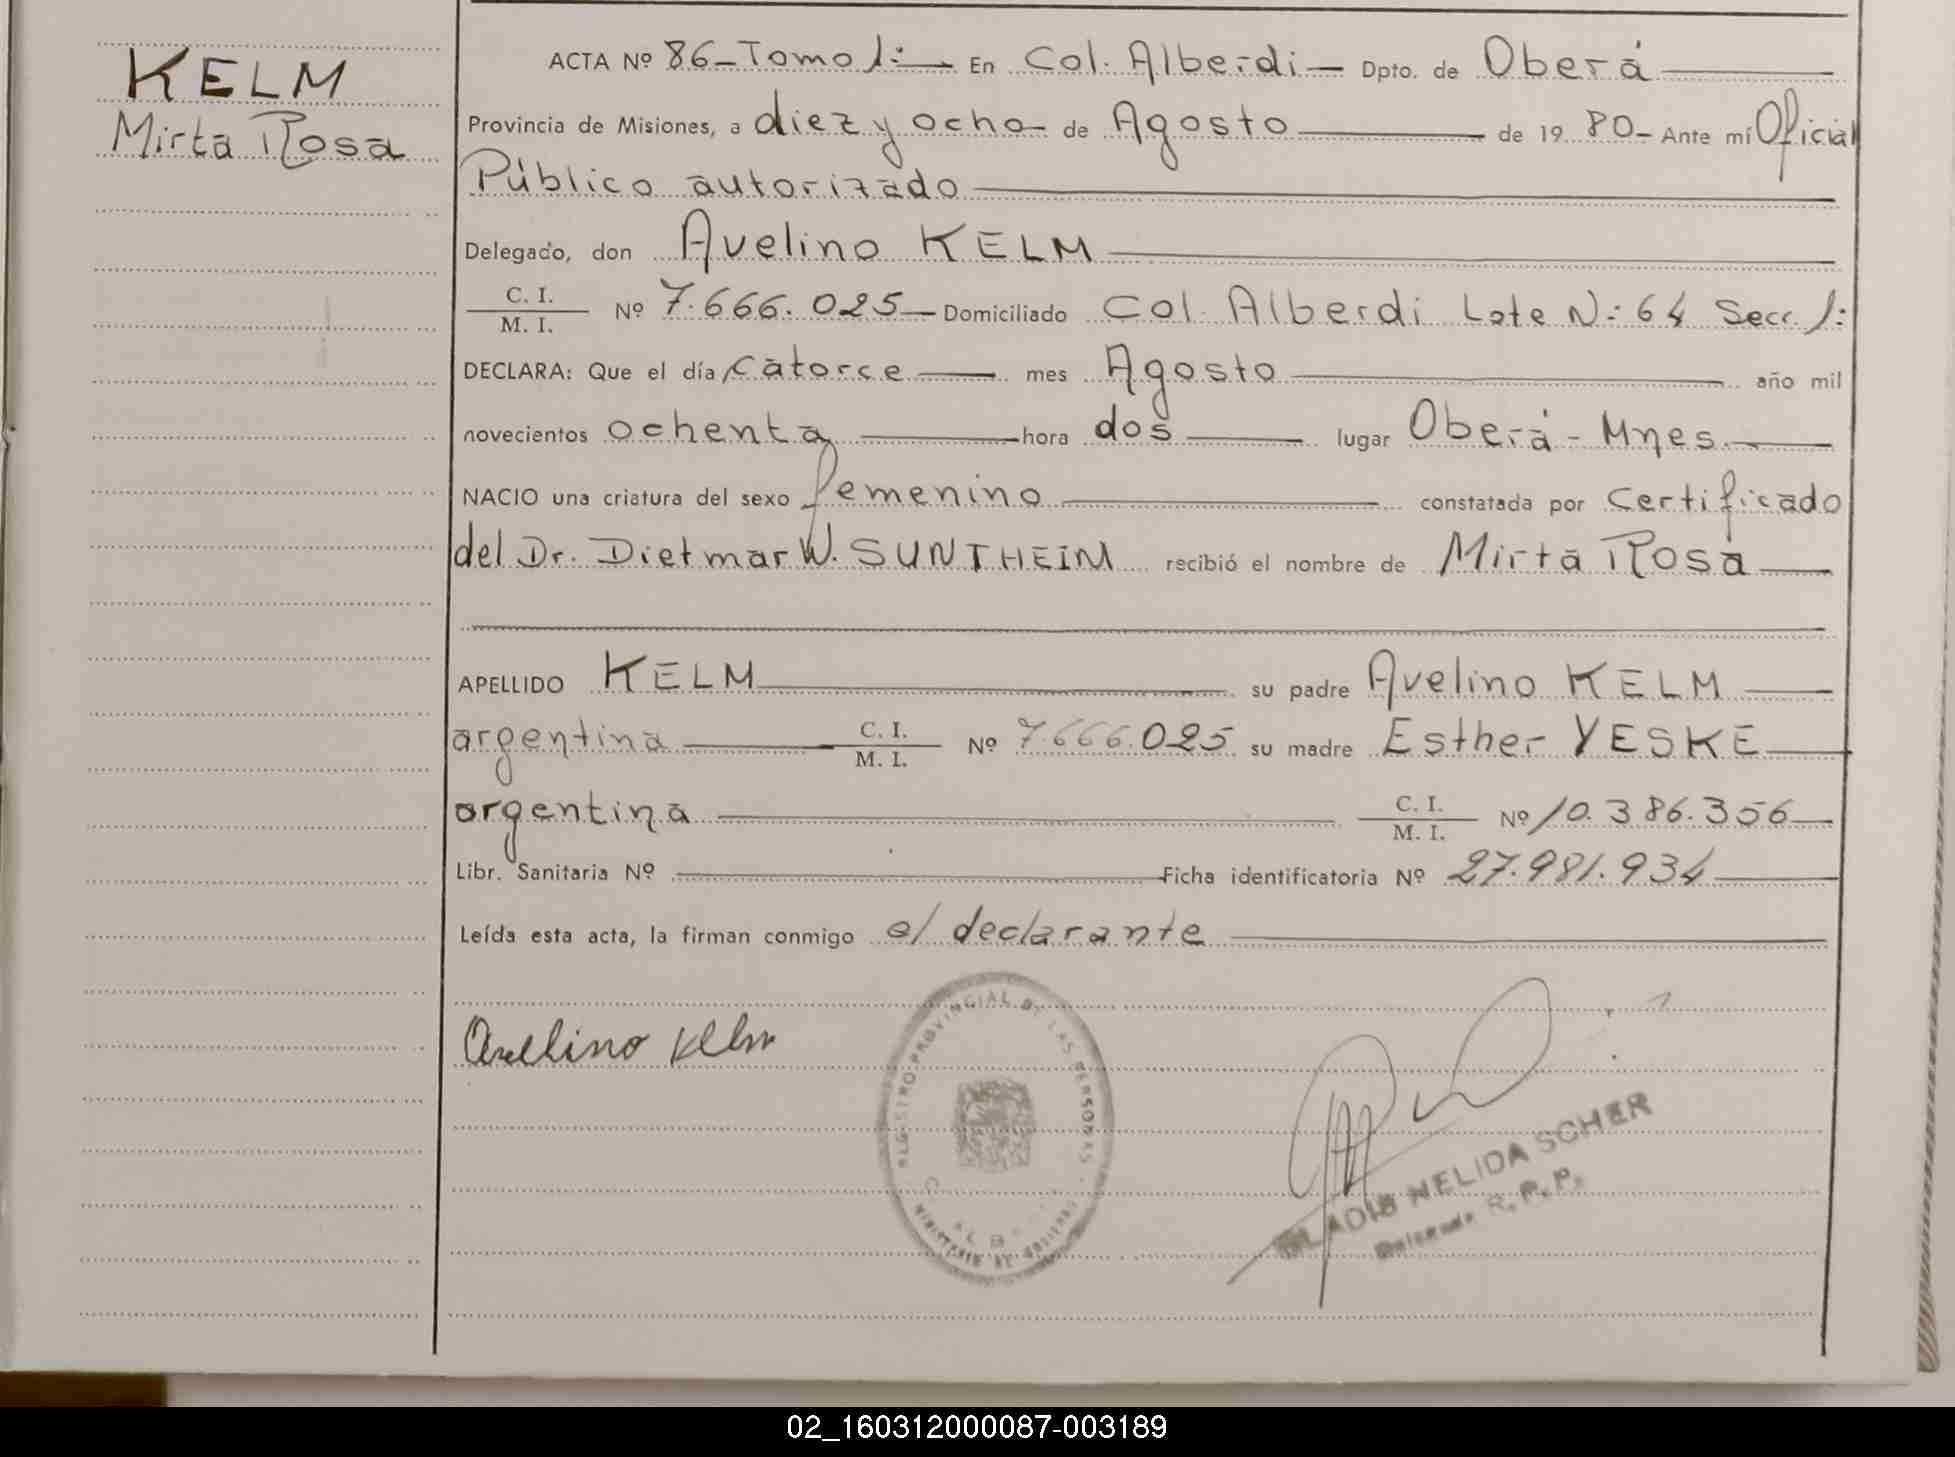 KELM
Mirta Rosa
ACTA Nº 86-Tomo 1: En Col. Alberdi Dpto. de Oberá
Provincia de Misiones, a diez y ocho de Agosto de 19 80- Ante mí Oficial
Público autorizado
Delegado, don Avelino KELM
C. I.
M. I. Nº 7.666.025 Domiciliado Col. Alberdi Lote N: 64 Secc. 1:
DECLARA: Que el día catorce mes Agosto año mil
novecientos ochenta hora dos lugar Oberá - Mnes.
NACIO una criatura del sexo femenino constatada por Certificado
del Dr. Dietmar W. SUNTHEIM recibió el nombre de Mirta Rosa
APELLIDO KELM su padre Avelino KELM
argentina C. I.
M. I. Nº 7.666.025 su madre Esther YESKE
argentina C. I.
M. I. Nº 10.386.356
Libr. Sanitaria Nº Ficha identificatoria Nº 27.981.934
Leída esta acta, la firman conmigo el declarante
Avelino Kelm
REGISTRO PROVINCIAL DE LAS PERSONAS
MINISTERIO DE GOBIERNO
GLADIS NELIDA SCHER
Delegada R. P. P.
02_160312000087-003189